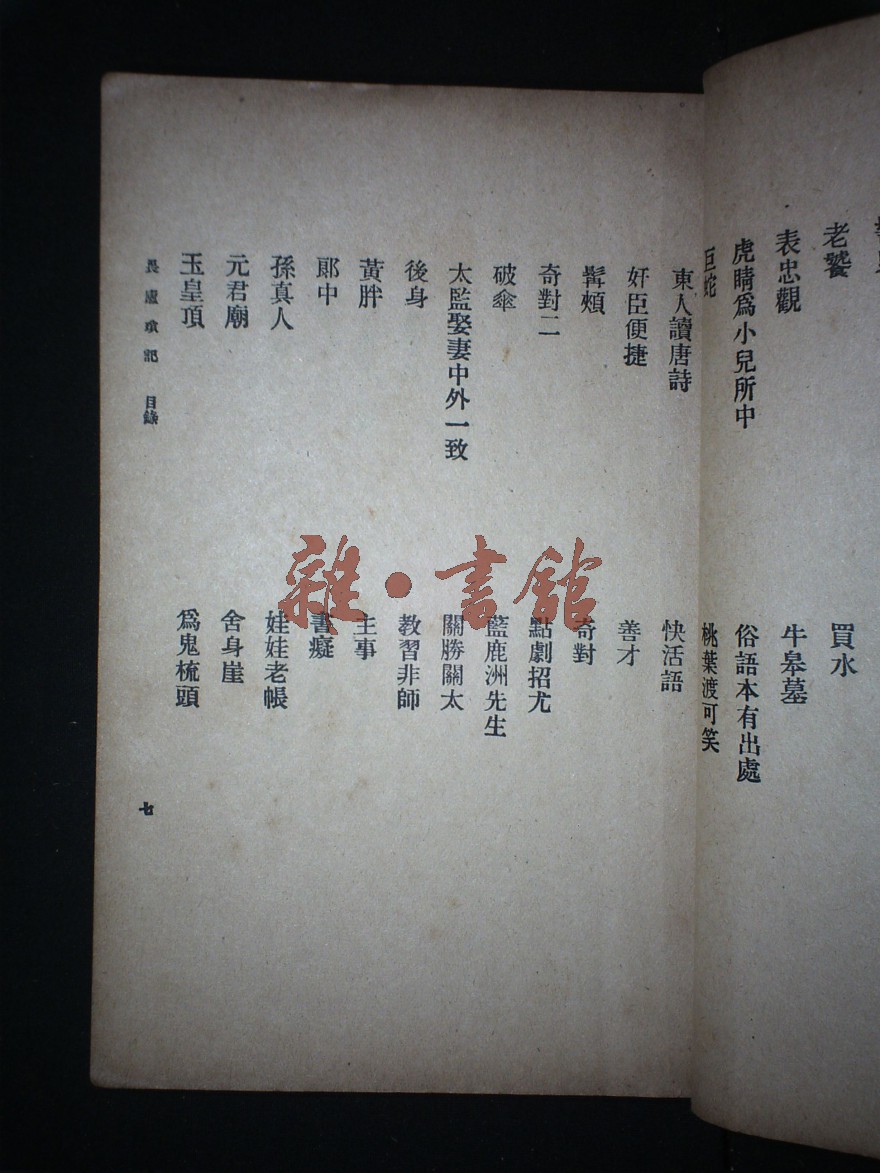 老饕
買水
表忠觀
牛皋墓
虎睛爲小兒所中
俗語本有出處
巨蛇
桃葉渡可笑
東人讀唐詩
快活語
奸臣便捷
善才
髯頰
奇對
奇對二
點劇招尤
破傘
藍鹿洲先生
太監娶妻中外一致
關勝關太
後身
教習非師
黃胖
主事
郎中
書癡
孫真人
娃娃老帳
元君廟
舍身崖
玉皇頂
爲鬼梳頭
畏廬瑣記 目錄
七
雜·書館